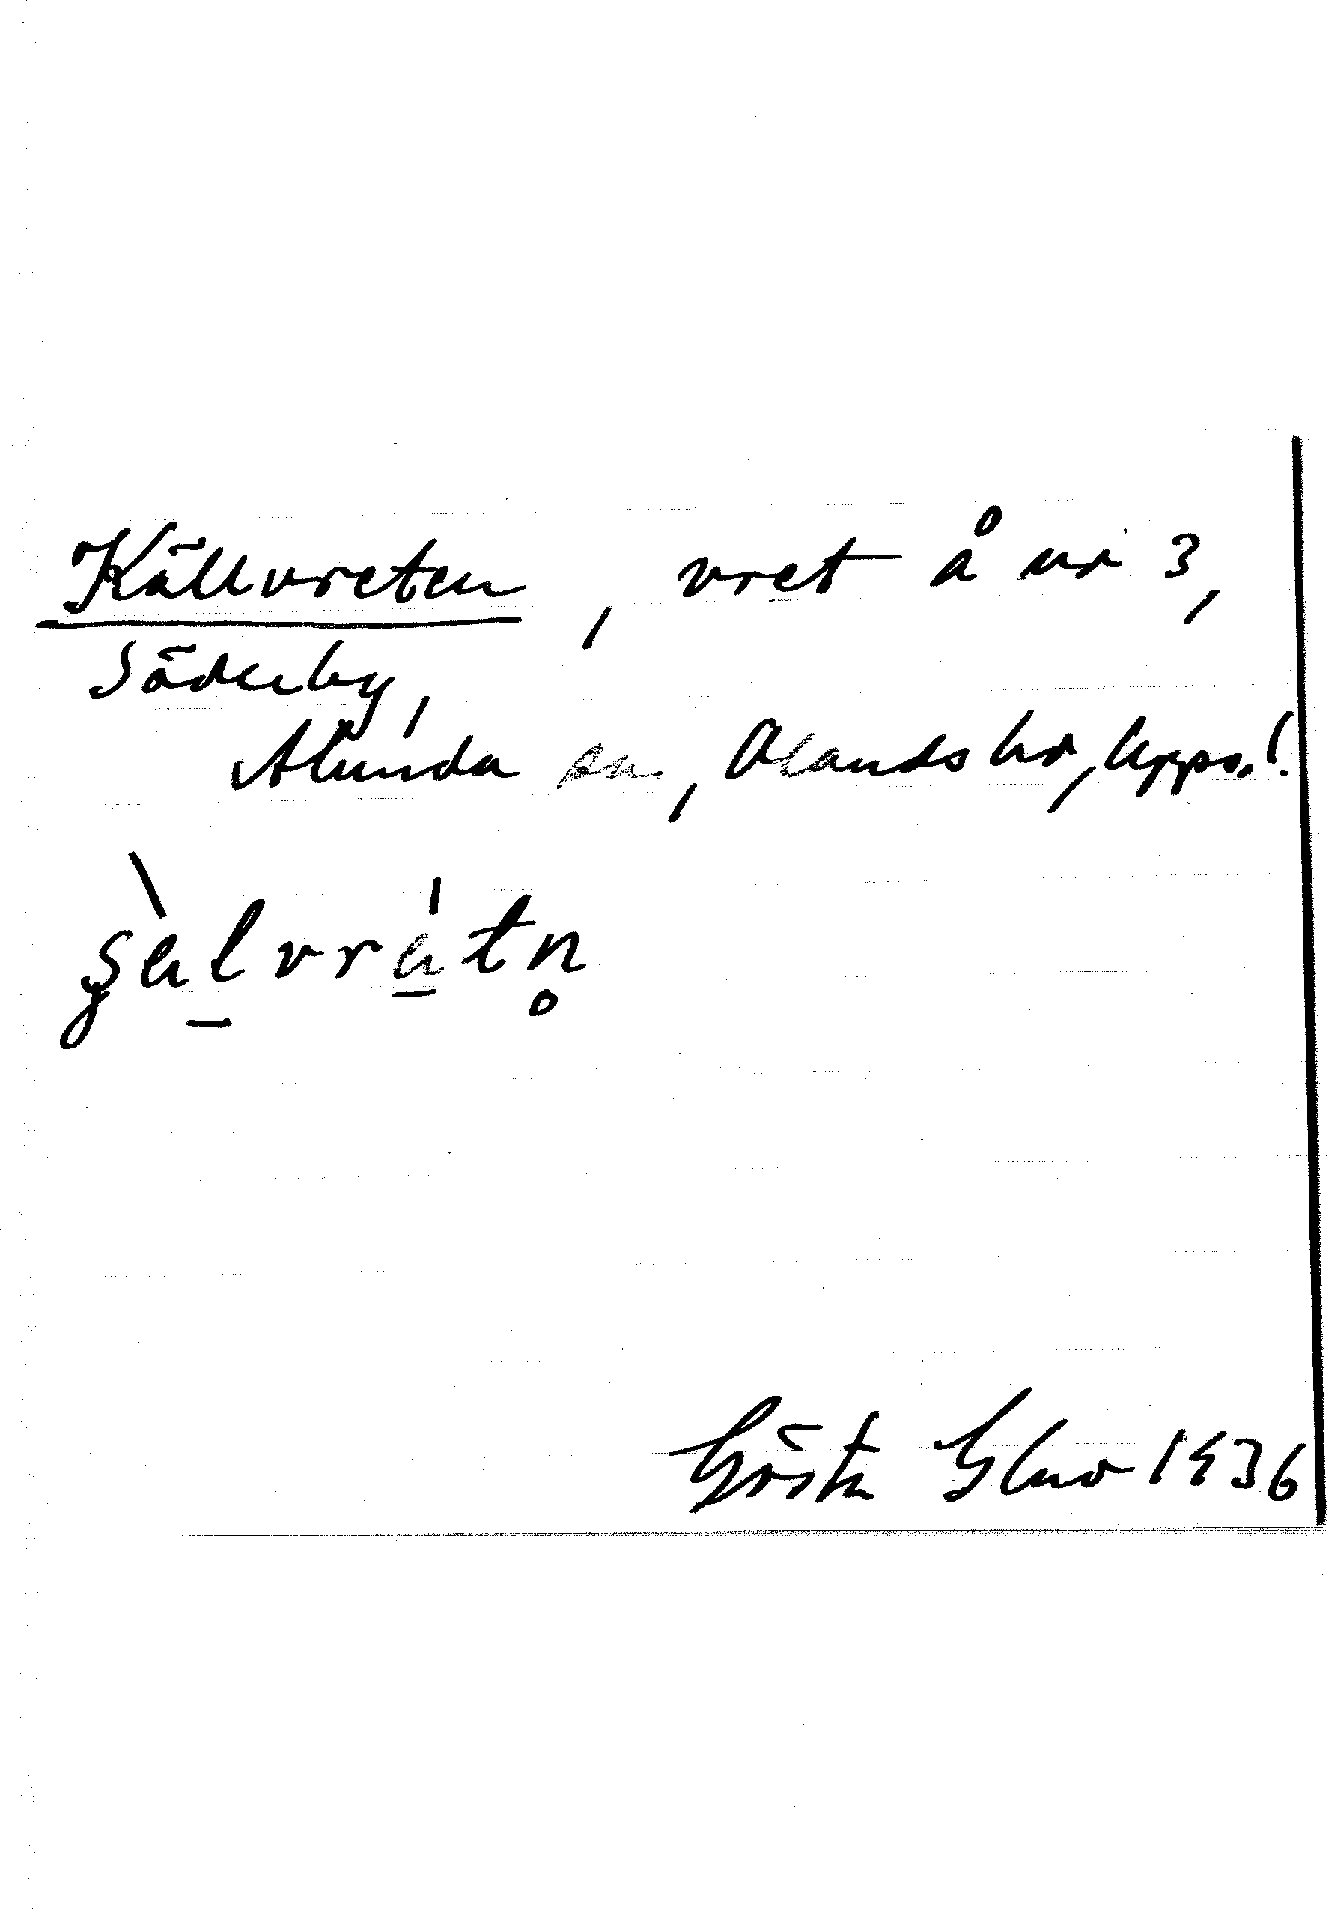 Källvreten, vret å nr 3,
Söderby,
Alunda sn, Olands hd, Upps. l.
Gösta 1936